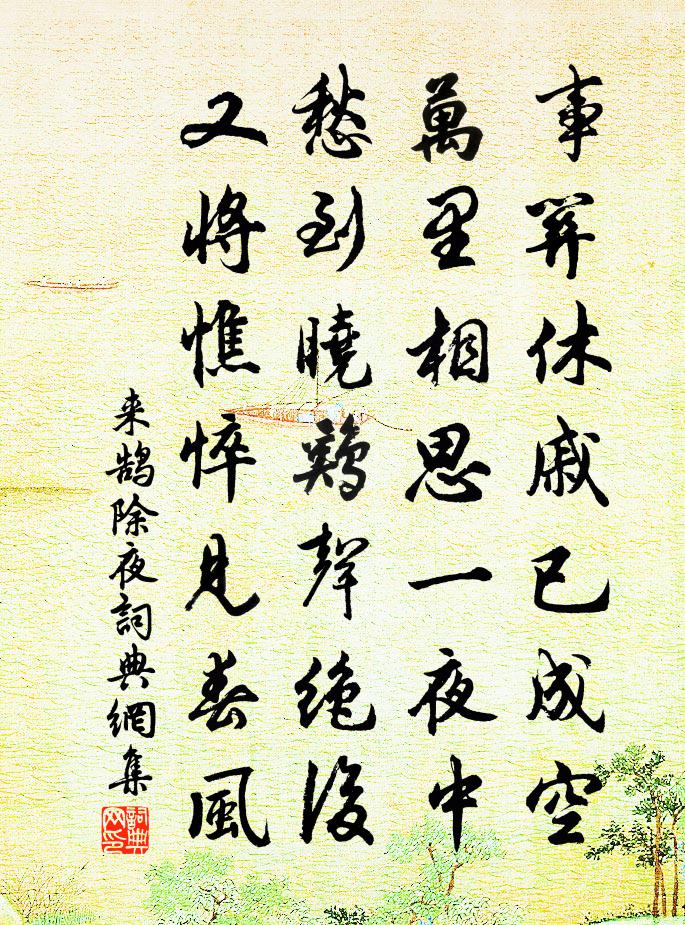 事關休戚已成空
萬里相思一夜中
愁到曉鷄聲絕後
又將憔悴見春風
来鵠除夜詞典網集
詞典网印